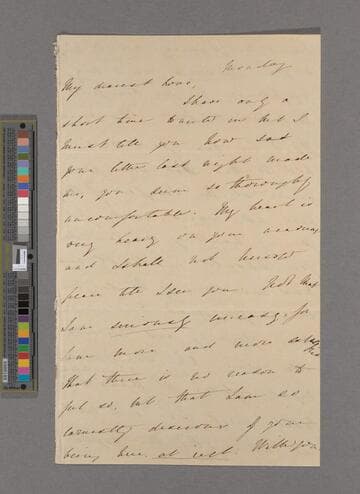 Monday
My dearest Love,
I have only a
short time to write in but I
must tell you how sad
your letter last night made
me, you seem so thoroughly
uncomfortable. My heart is
very heavy on your account
and I shall not
peace till I see you. Not that
I am seriously uneasy, for
I am more and more
that there is no reason to
feel so, but that I am so
earnestly desirous of your
being here at rest.